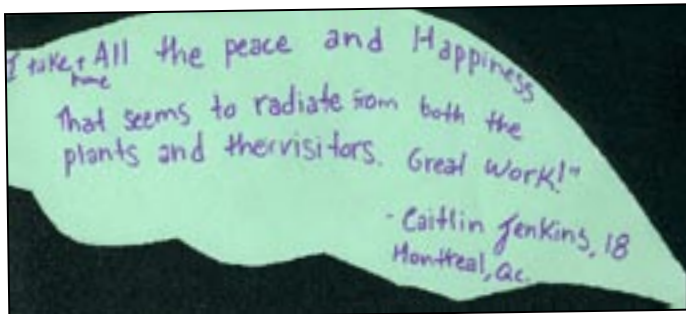 I take home All the peace and Happiness
That seems to radiate from both the
plants and their visitors. Great Work!"
- Caitlin Jenkins, 18
Montreal, Qc.